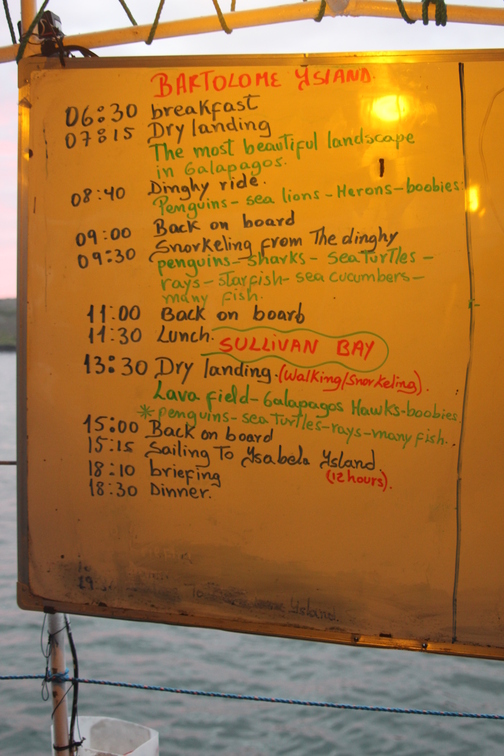 BARTOLOME YSLAND.
06:30 breakfast
07:15 Dry landing
The most beautiful landscape
in Galapagos.
08:40 Dinghy ride.
Penguins - sea lions - Herons - boobies.
09:00 Back on board
09:30 Snorkeling from The dinghy
penguins - sharks - sea Turtles -
rays - starfish - sea cucumbers -
many fish.
11:00 Back on board
11:30 Lunch. SULLIVAN BAY
13:30 Dry landing. (Walking/Snorkeling).
Lava field - Galapagos Hawks - boobies
* penguins - sea Turtles - rays - many fish.
15:00 Back on board
15:15 Sailing To Ysabela Ysland
18:10 briefing (12 hours).
18:30 Dinner.
Ysland.